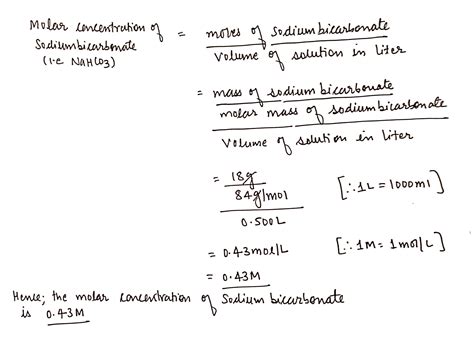 Molar concentration of = moles of sodium bicarbonate
Sodium bicarbonate volume of solution in liter
(i.e NaHCO3)
= mass of sodium bicarbonate
molar mass of sodium bicarbonate
Volume of solution in liter
= 18g
84g/mol [∴1L = 1000ml]
0.500L
= 0.43mol/L [∴1M = 1mol/L]
= 0.43M
Hence; the molar concentration of Sodium bicarbonate
is 0.43M